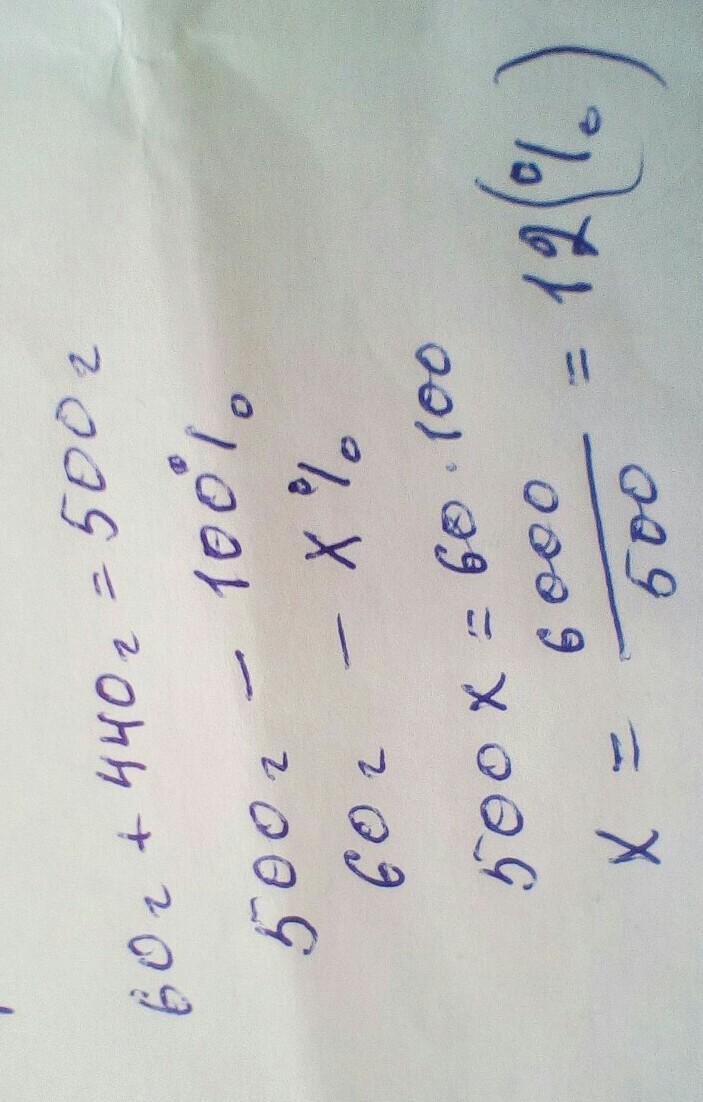 60г + 440г = 500г
500г - 100%
60г - x%
500x = 60·100
x = 6000/500 = 12(%)